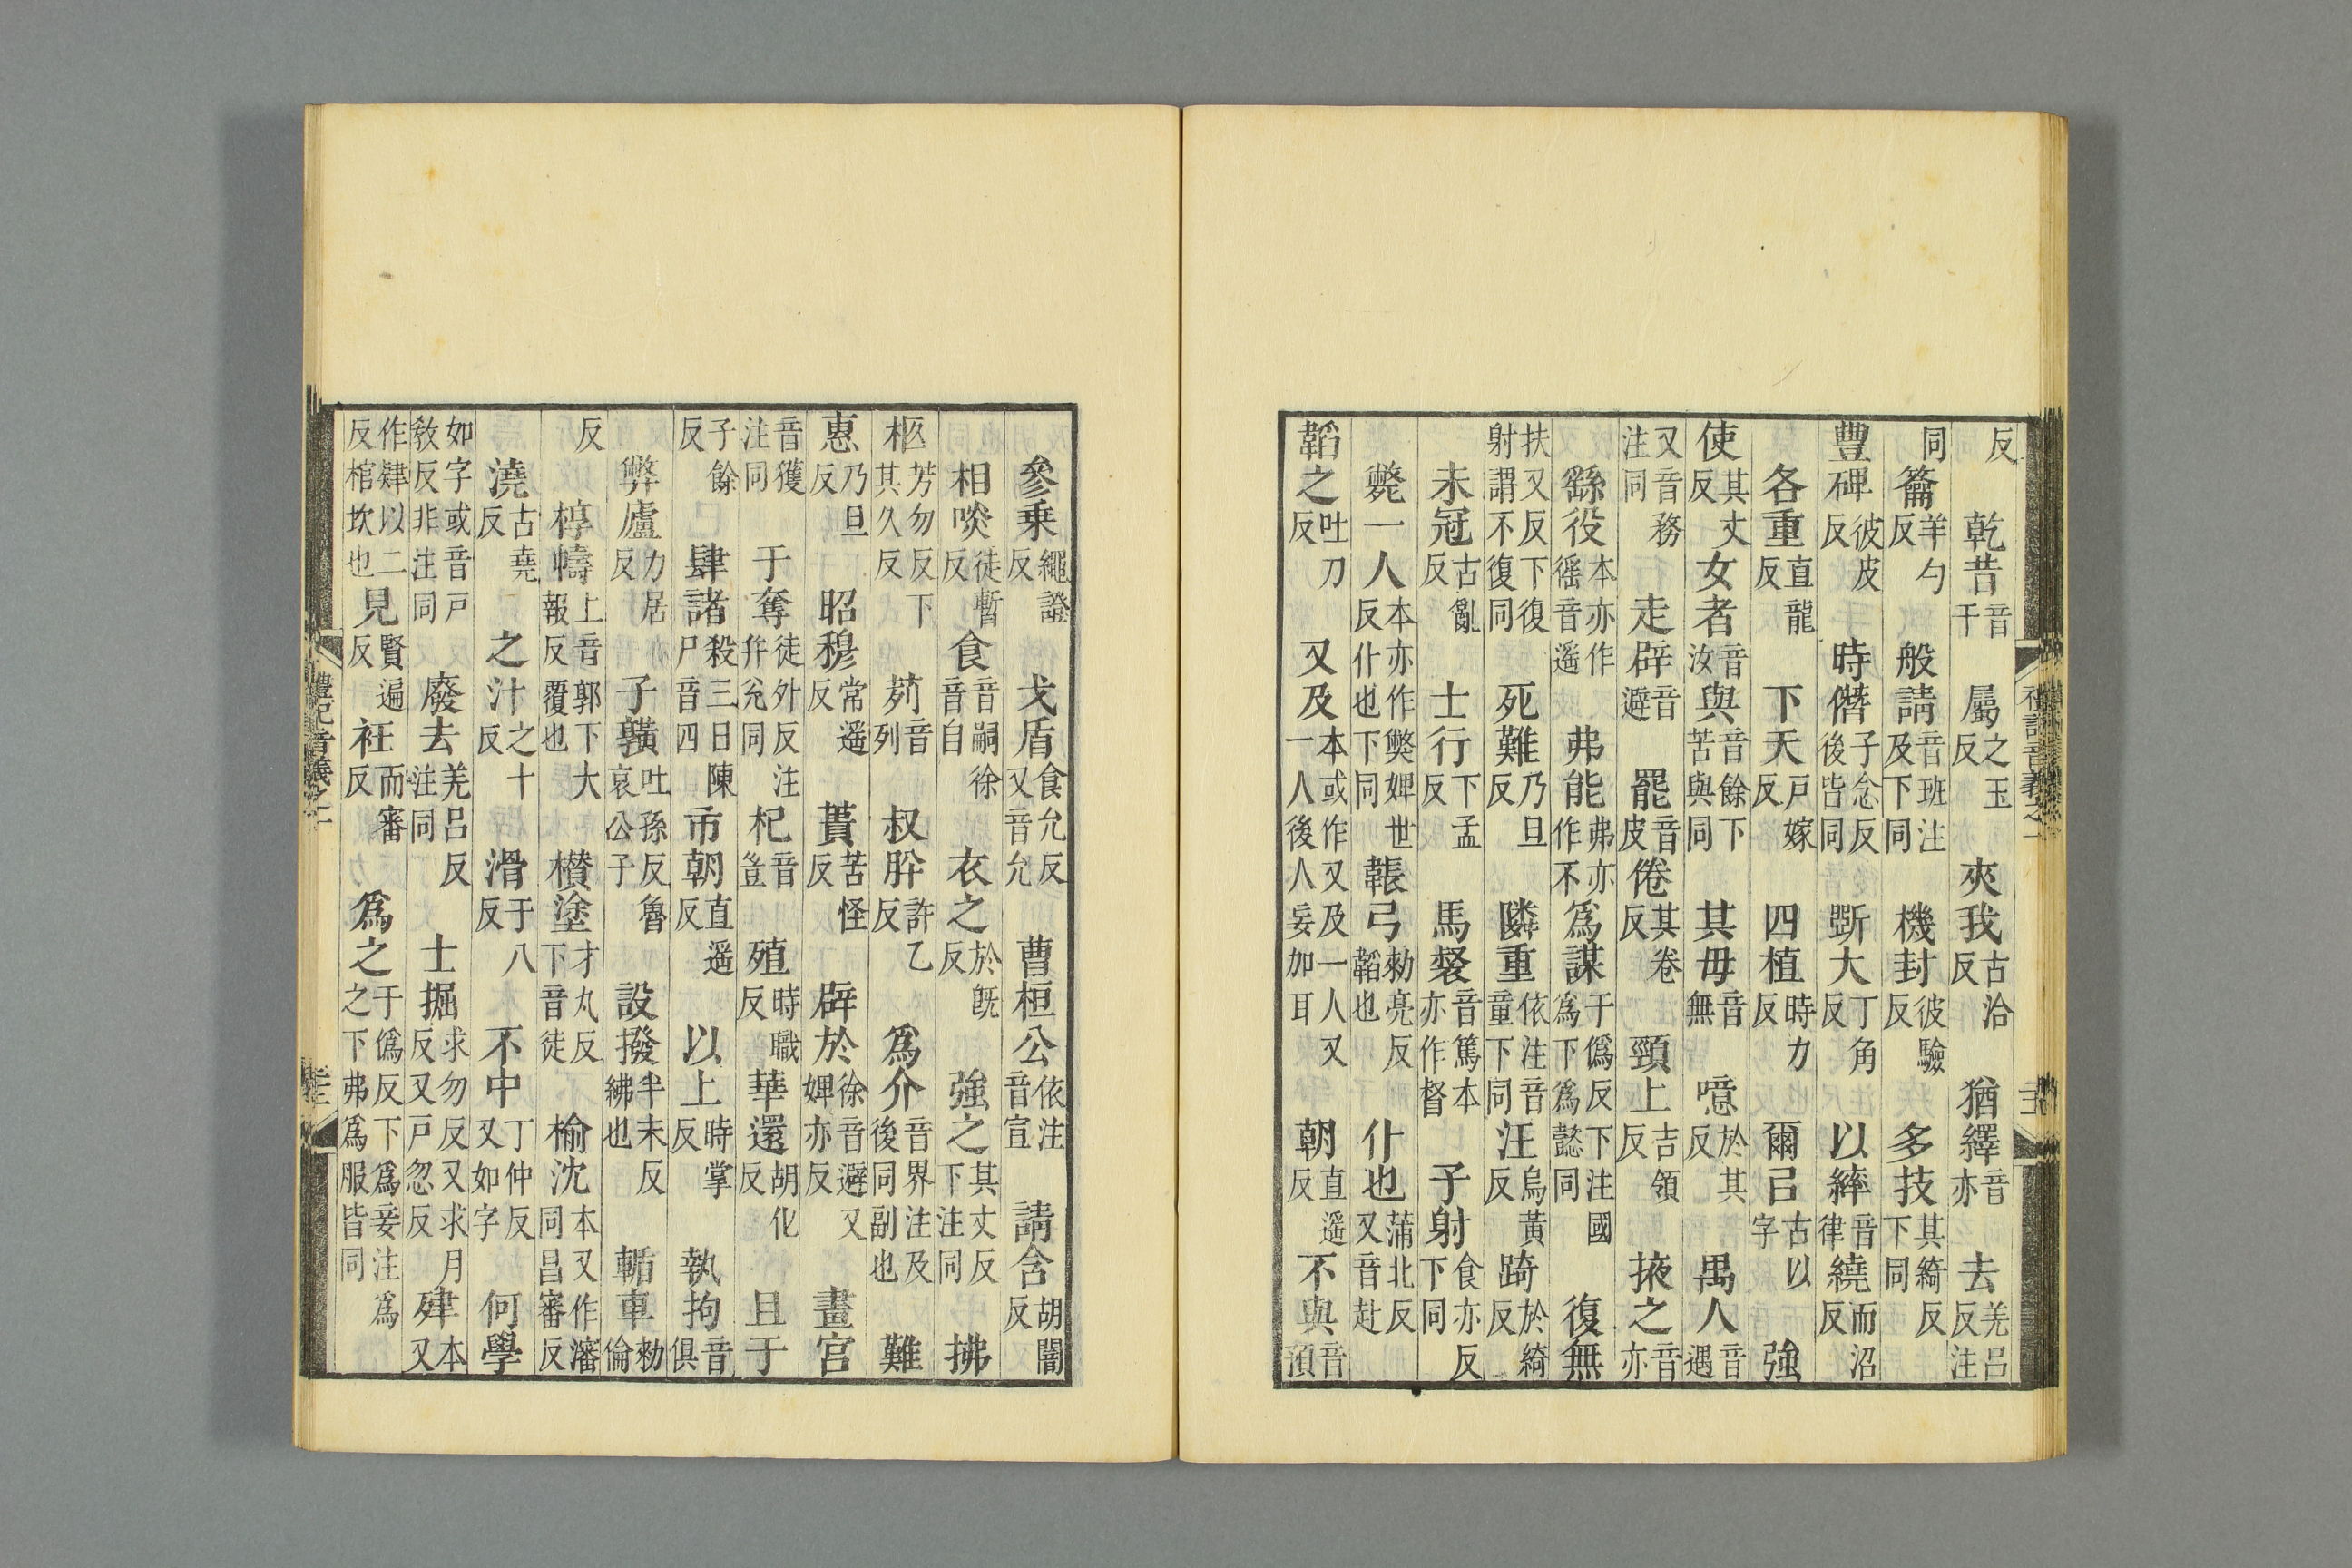 反　乾昔音干　屬之玉反　夾我古洽反　猶繹音亦　去羌呂反注
同　籥羊勺反　般請音班注及下同　機封彼驗反　多技其綺反下同
豐碑彼皮反　時僭子念反後皆同　斲大丁角反　以繂音律　繞而沼反
各重直龍反　下天戶嫁反　四植時力反　爾㠯古以字　強
使其丈反　女者音汝　與音餘下苦與同　其毋音無　噫於其反　禺人音遇
又音務注同　走辟音避　罷音皮　倦其卷反　頸上吉領反　掖之音亦
繇役本亦作徭音遥　弗能弗亦作不　爲謀于僞反下注國爲下爲懿同　復無
扶又反下復射謂不復同　死難乃旦反　鄰重依注音童下同　汪烏黃反　踦於綺反
未冠古亂反　士行下孟反　馬䅽音篤本亦作督　子射食亦反下同
斃一人本亦作獘婢世反仆也下同　韔弓勑亮反韜也　仆也蒲北反又音赴
韜之吐刀反　又及本或作又及一人又一人後人妄加耳　朝直遥反　不與音預
禮記音義之一
參乘繩證反　戈盾食允反又音允　曹桓公依注音宣　請含胡闇反
相啖徒暫反　食音嗣徐音自　衣之於旣反　強之其丈反下注同　拂
柩芳勿反下其久反　茢音列　叔肸許乙反　爲介音界注及後同副也　難
惠乃旦反　昭穆常遥反　蕢苦怪反　辟於徐音避又婢亦反　畫宮
音獲注同　于奪徒外反注并兌同　杞音豈　殖時職反　華還胡化反　且于
子餘反　肆諸殺三日陳尸音四　市朝直遥反　以上時掌反　執拘音俱
弊廬力居反　子䵍吐孫反魯哀公子　設撥半末反紼也　輴車勑倫
反　椁幬上音郭下大報反覆也　欑塗才丸反下音徒　榆沈本又作瀋同昌審反
澆古堯反　之汁之十反　滑于八反　不中丁仲反又如字　何學
如字或音戶敎反非注同　廢去羌呂反注同　士掘求勿反又求月反又戶忽反　肂本又
作肄以二反棺坎也　見賢遍反　衽而審反　爲之于僞反下爲妾注爲之下弗爲服皆同
禮記音義之一